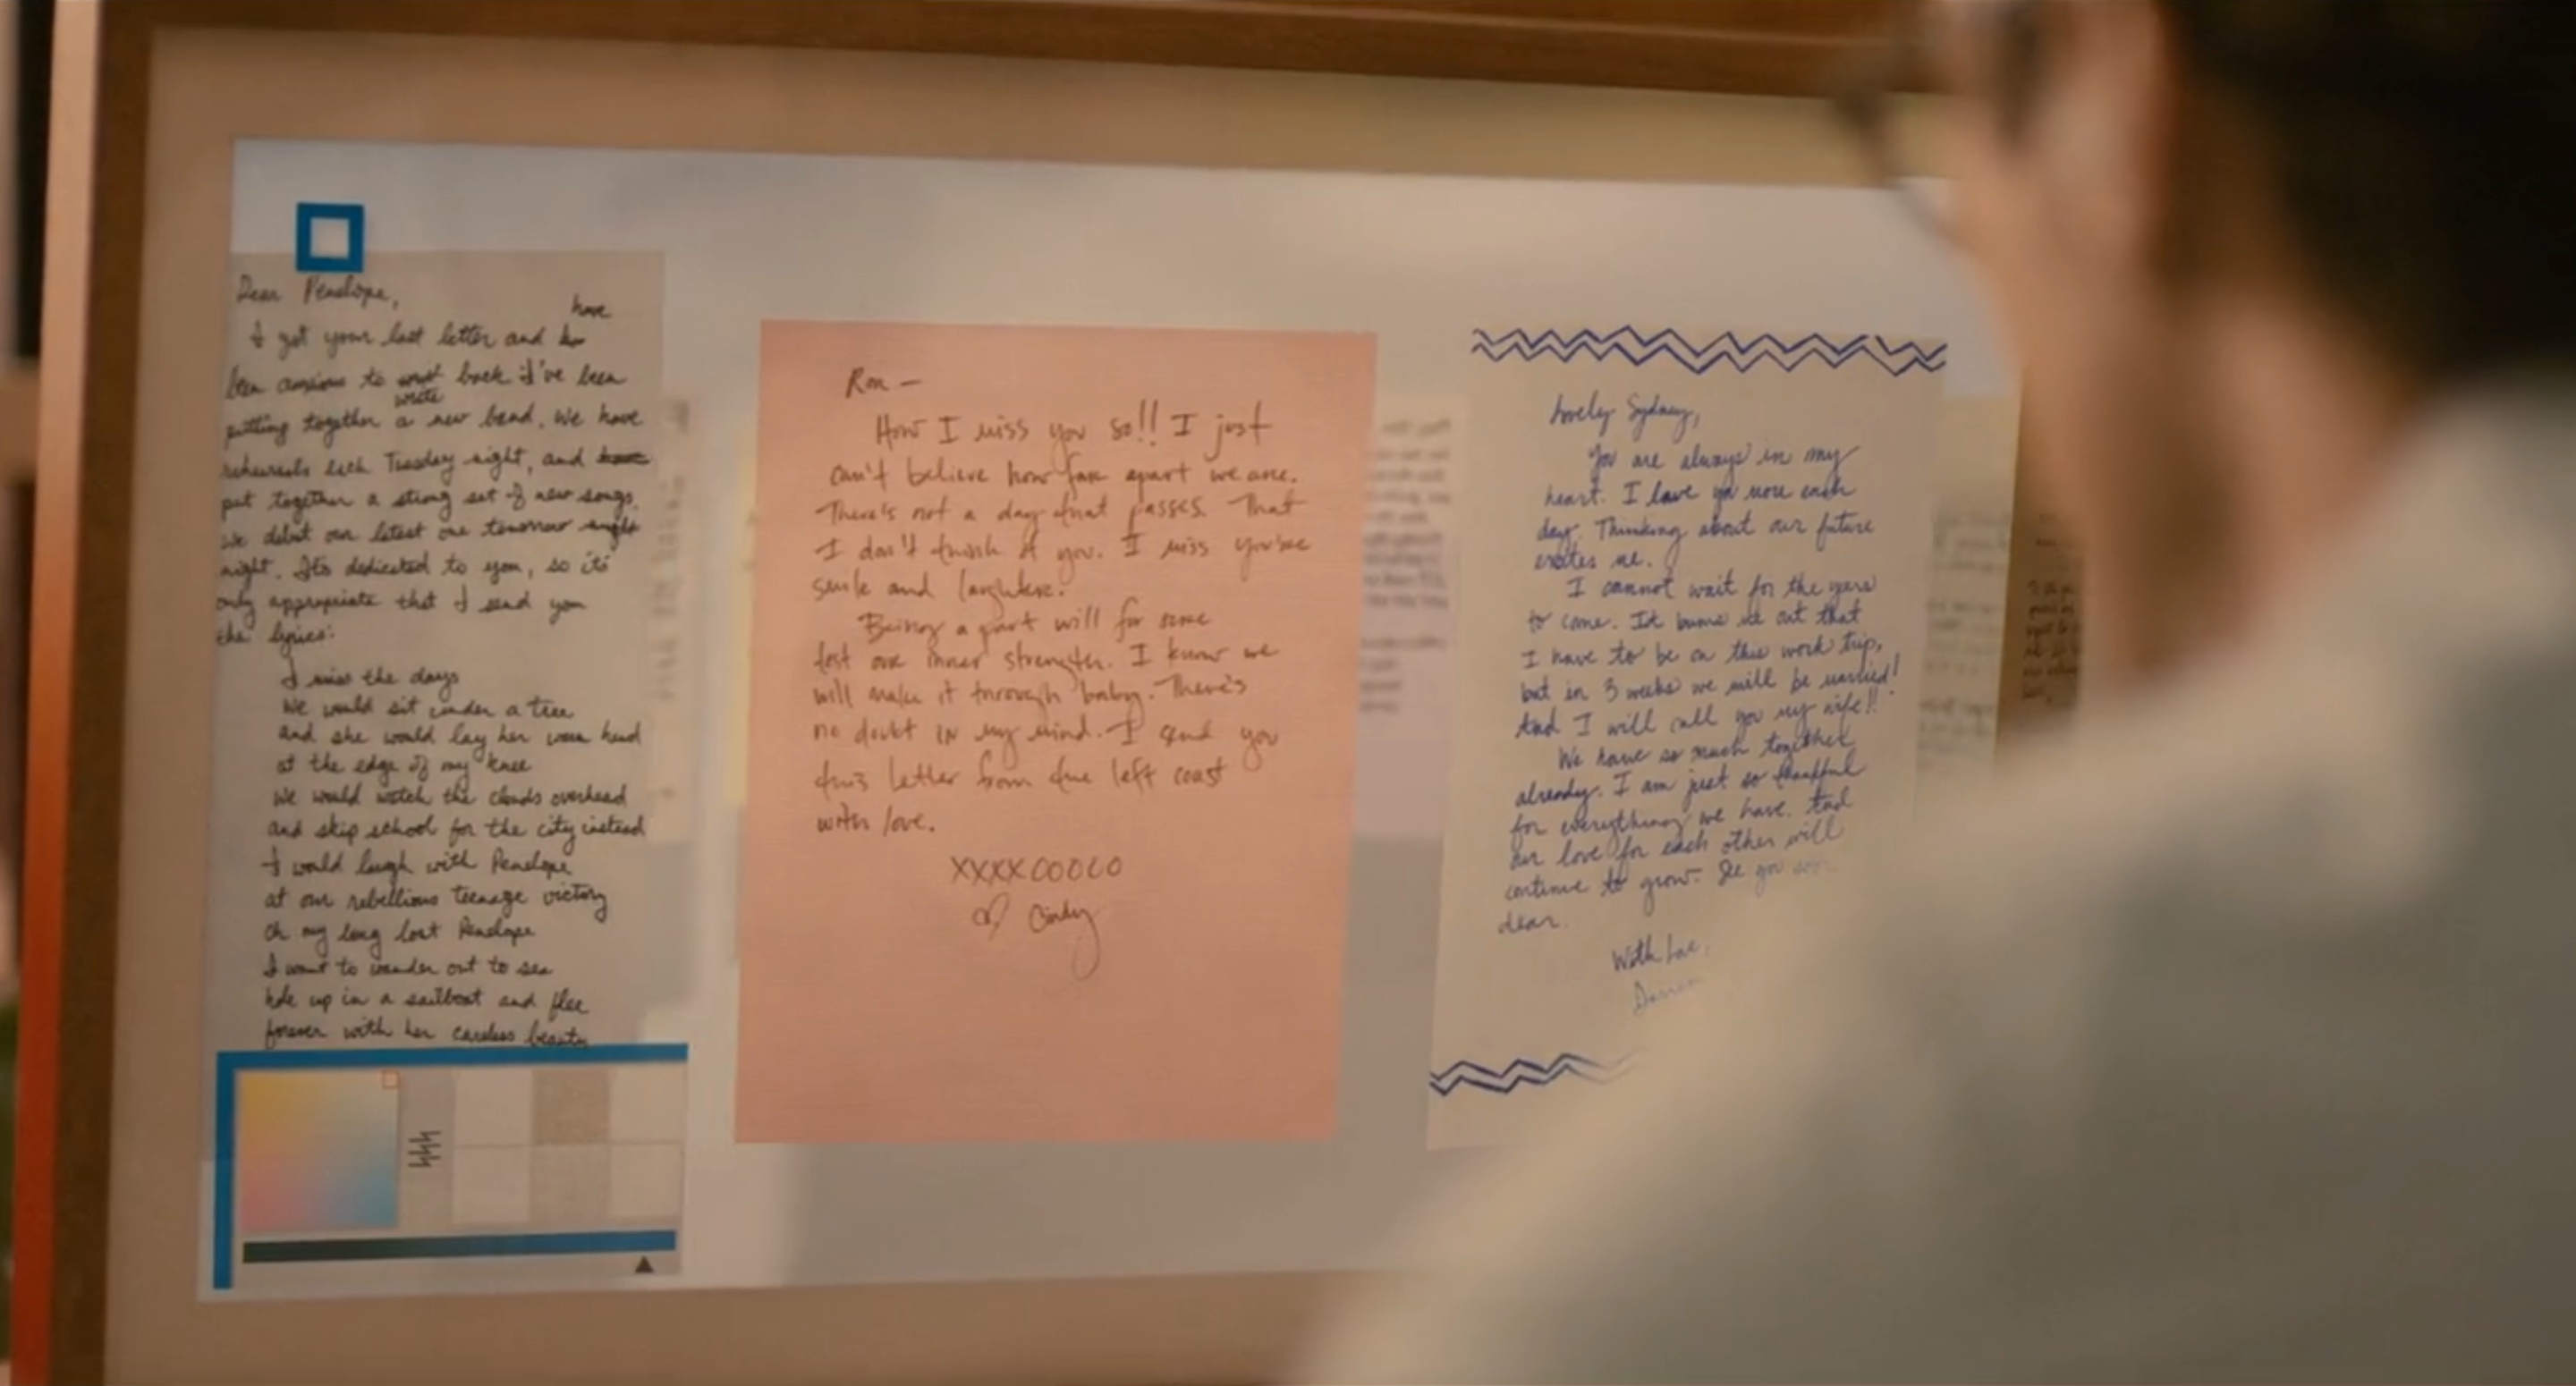 Dear Penelope,
have
I got your last letter and ha
been anxious to writ back I've been
write
putting together a new band. We have
rehearsals each Tuesday night, and have
put together a strong set of new songs.
We debut our latest one tomorrow night
night. Its dedicated to you, so it's
only appropriate that I send you
the lyrics:
I miss the days
We would sit under a tree
and she would lay her worn head
at the edge of my knee
We would watch the clouds overhead
and skip school for the city instead
I would laugh with Penelope
at our rebellious teenage victory
Oh my long lost Penelope
I want to wander out to sea
hole up in a sailboat and flee
forever with her careless beauty
Ron —
How I miss you so!! I just
can't believe how far apart we are.
There's not a day that passes. That
I don't think of you. I miss you're
smile and laughter.
Being a part will for sure
test our inner strength. I know we
will make it through baby. There's
no doubt in my mind. I send you
this letter from the left coast
with love.
XXXXOOOO
Cindy
Lovely Sydney,
You are always in my
heart. I love you more each
day. Thinking about our future
excites me.
I cannot wait for the years
to come. It bums me out that
I have to be on this work trip,
but in 3 weeks we will be married!
And I will call you my wife!!
We have so much together
already. I am just so thankful
for everything we have. And
our love for each other will
continue to grow. See you soon
dear.
With Love,